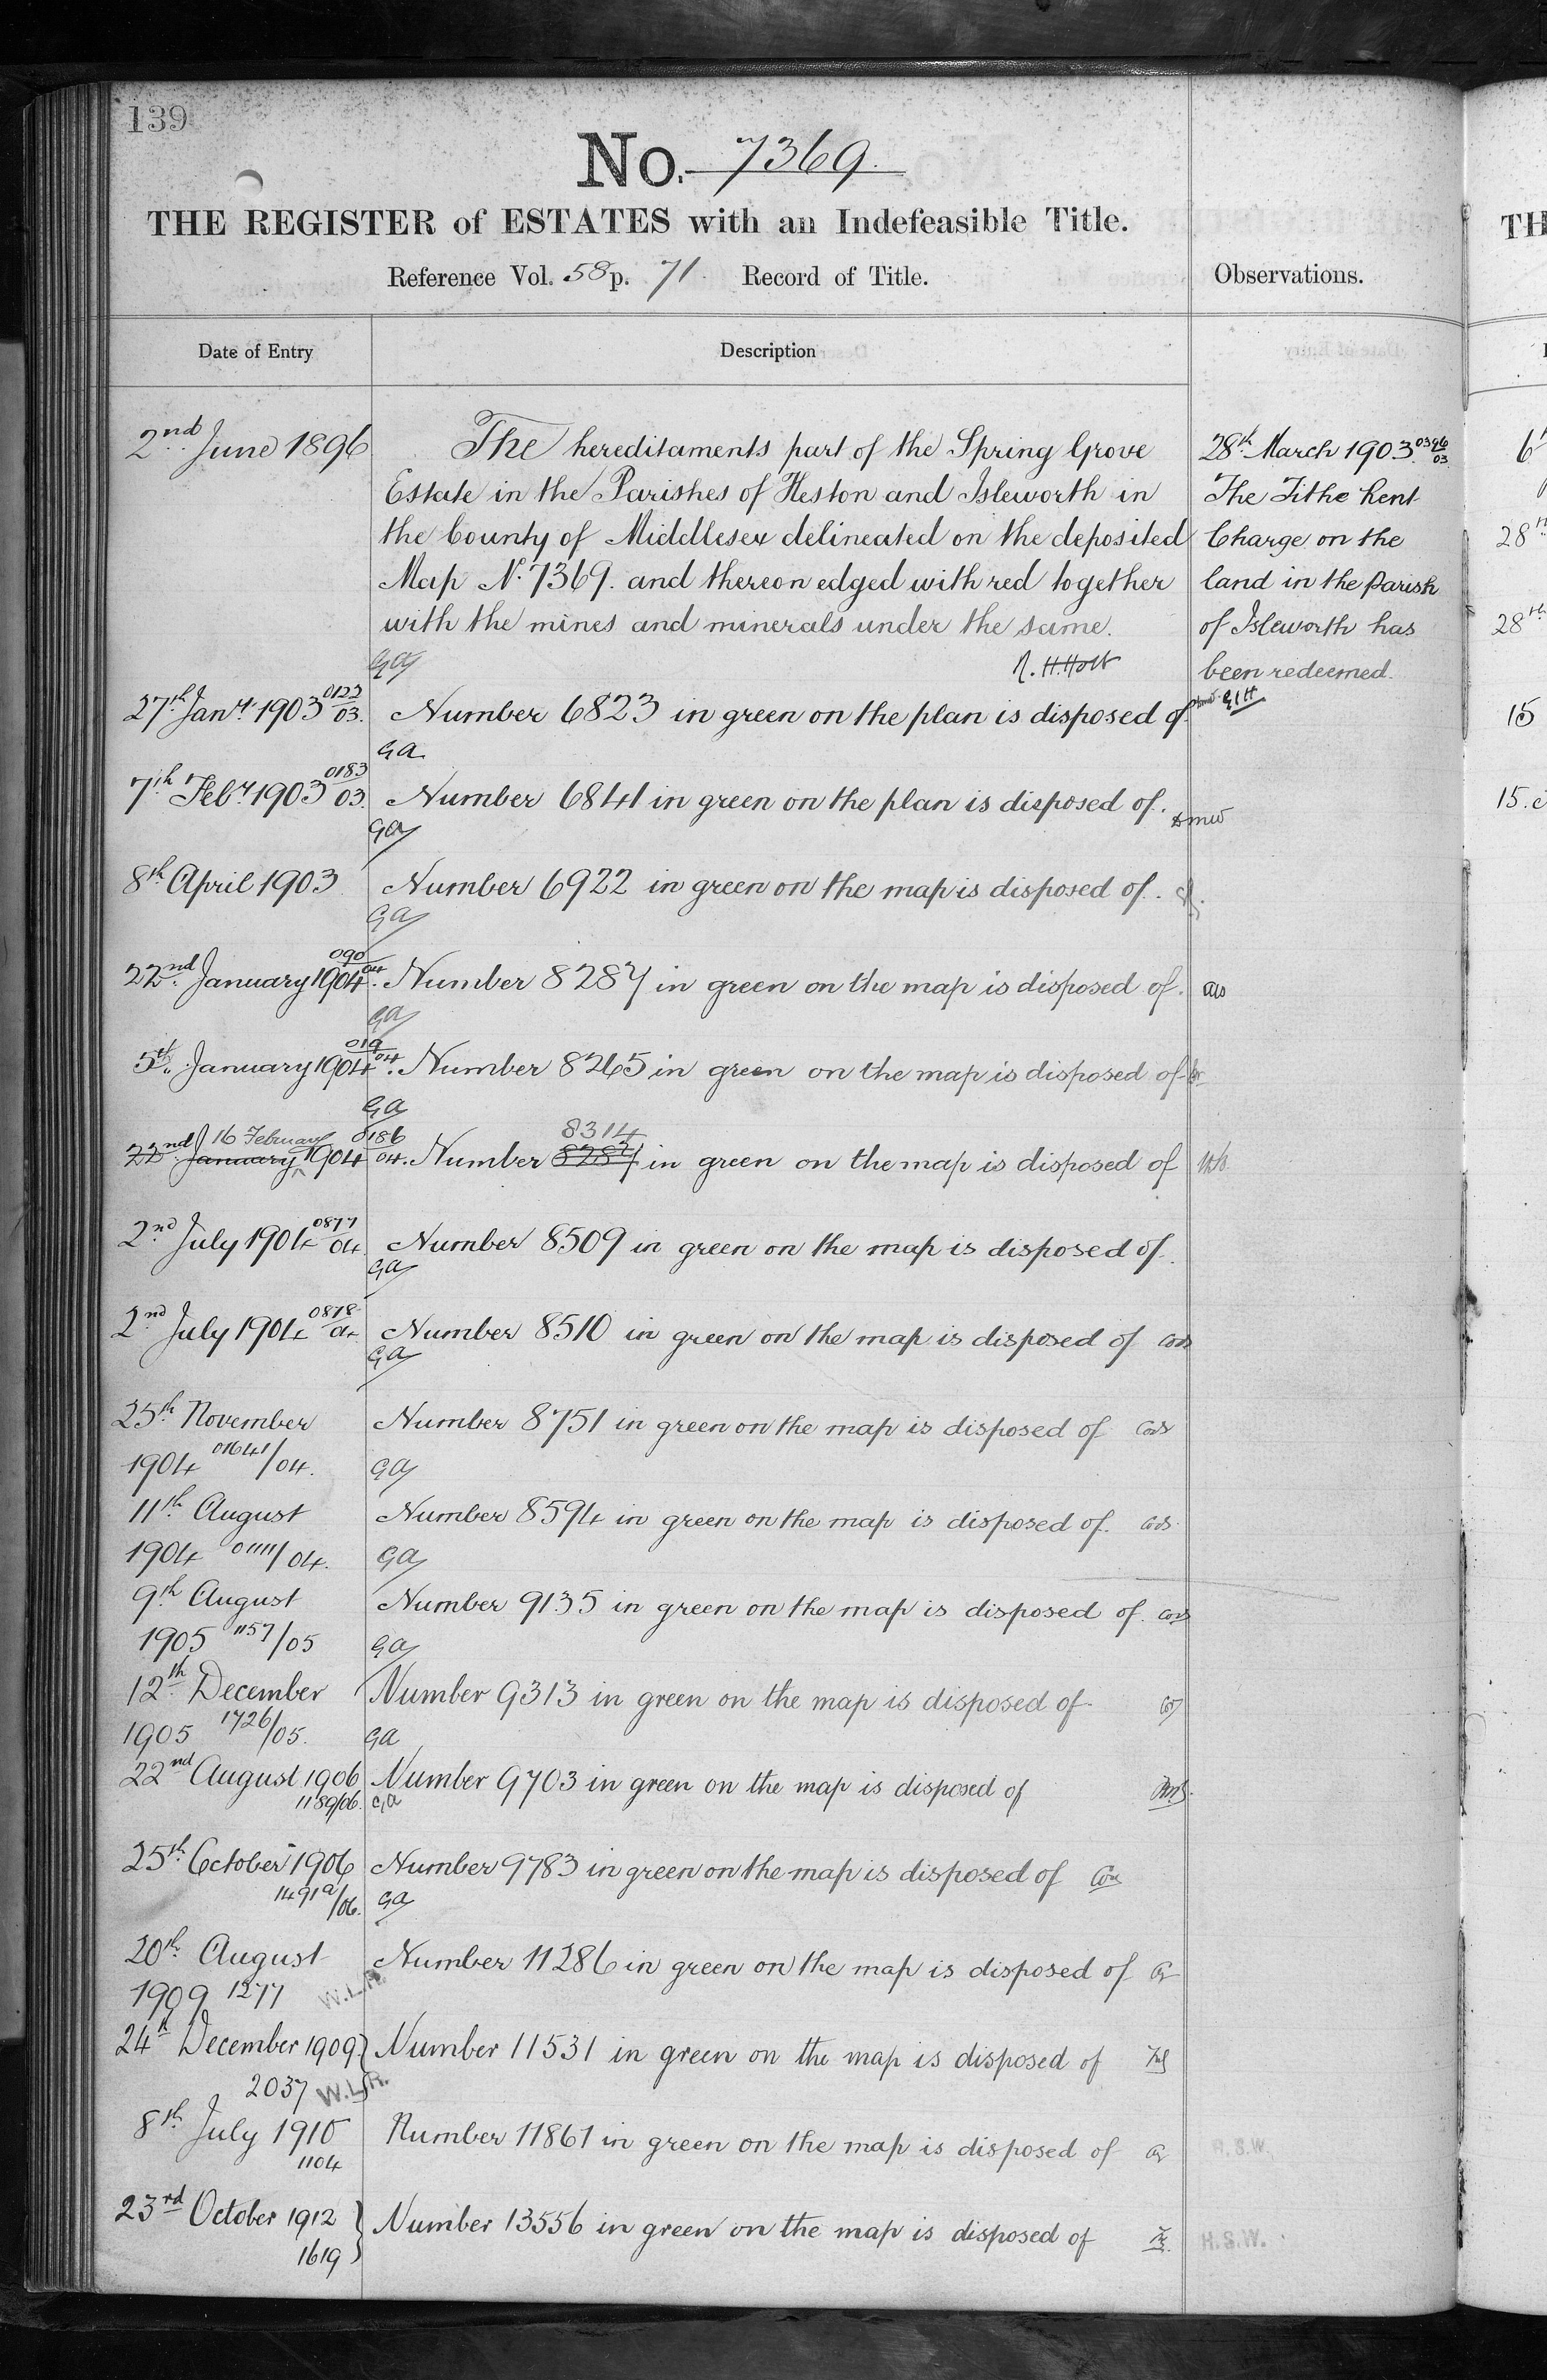 139
No. 7369.
THE REGISTER of ESTATES with an Indefeasible Title.
Reference Vol. 58 p. 71. Record of Title.
Observations.
Date of Entry
Description
2nd June 1896
The hereditaments part of the Spring Grove
Estate in the Parishes of Heston and Isleworth in
the County of Middlesex delineated on the deposited
Map No. 7369. and thereon edged with red together
with the mines and minerals under the same.
GA
R. H. Holt
28th March 1903.
The Tithe Rent
Charge on the
land in the Parish
of Isleworth has
been redeemed.
27th Jany 1903 0122/03. Number 6823 in green on the plan is disposed of
GA
7th Feby 1903 0183/03. Number 6841 in green on the plan is disposed of.
GA
8th April 1903 Number 6922 in green on the map is disposed of.
GA
22nd January 1904 090/04. Number 8287 in green on the map is disposed of.
GA
5th January 1904 019/04. Number 8265 in green on the map is disposed of
GA
16 February 8314
22nd January 1904 0186/04. Number 8287 in green on the map is disposed of
2nd July 1904 0877/04. Number 8509 in green on the map is disposed of.
GA
2nd July 1904 0878/04 Number 8510 in green on the map is disposed of
GA
25th November Number 8751 in green on the map is disposed of
1904 01641/04. GA
11th August Number 8594 in green on the map is disposed of.
1904 01111/04. GA
9th August Number 9135 in green on the map is disposed of.
1905 1157/05 GA
12th December Number 9313 in green on the map is disposed of
1905 1726/05. GA
22nd August 1906 Number 9703 in green on the map is disposed of
1189/06. GA
25th October 1906 Number 9783 in green on the map is disposed of
1491a/06. GA
20th August Number 11286 in green on the map is disposed of
1909 1277 W.L.R.
24th December 1909 Number 11531 in green on the map is disposed of
2037 W.L.R.
8th July 1910 Number 11861 in green on the map is disposed of
1104
H.S.W.
23rd October 1912 Number 13556 in green on the map is disposed of
1619
H.S.W.
TH
28th
28th
15
15